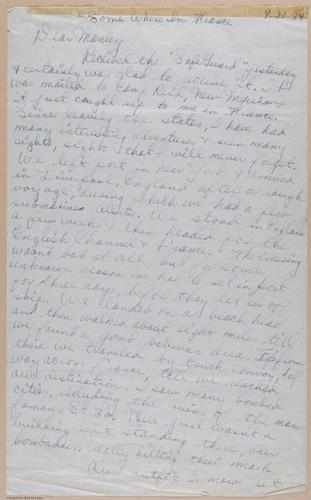 Some Where In France
9-21-44
Dear Maney
Received the "Safe Guard" yesterday
& certainly was glad to receive it. It
was mailed to Camp Reid New Mexico &
it just caught up to me in France.
Since leaving the states, I have had
many interesting adventures & seen many
sights, sights that I will never forget.
We left port in New York & arrived
in Liverpool, England after a rough
voyage, during which we had a few
submarines alerts. We stood in England
a few weeks & then headed for the
English Channel & France. The crossing
wasn't bad at all, but for some
unknown reason we had to sit in port
for three days, before they let us off
ship. We landed on a beach head
and then walked about eight miles till
we found a good bivouac area. From
there we traveled by truck convoy, half
way across France, till we reached
our destination. I saw many bombed
cities, including the ruins of the now
famous St. Lo. There just wasn't a
building left standing there, our
bombadiers really hitting their mark.
Our outfit is now set